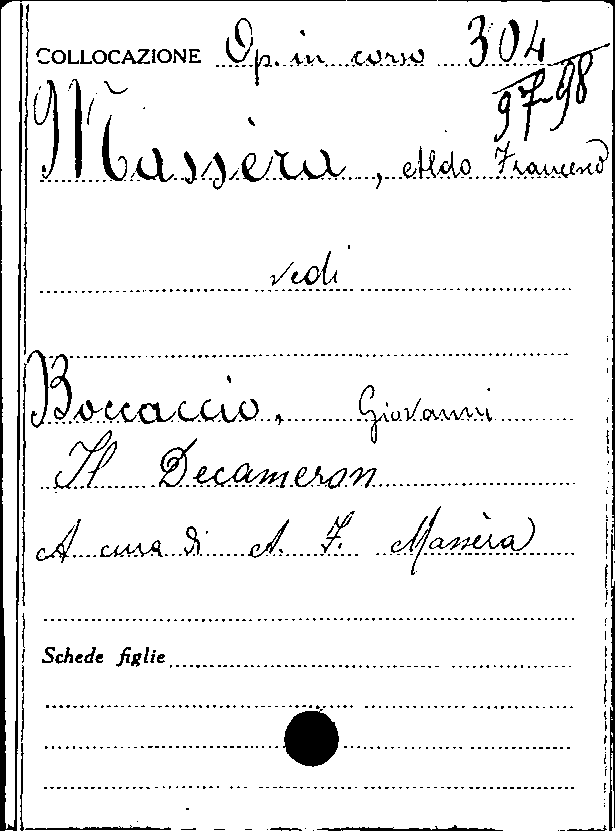 COLLOCAZIONE Op. in corso 304
97-98
Massèra, Aldo Francesco
vedi
Boccaccio, Giovanni
Il Decameron
A cura di A. F. Massèra
Schede figlie